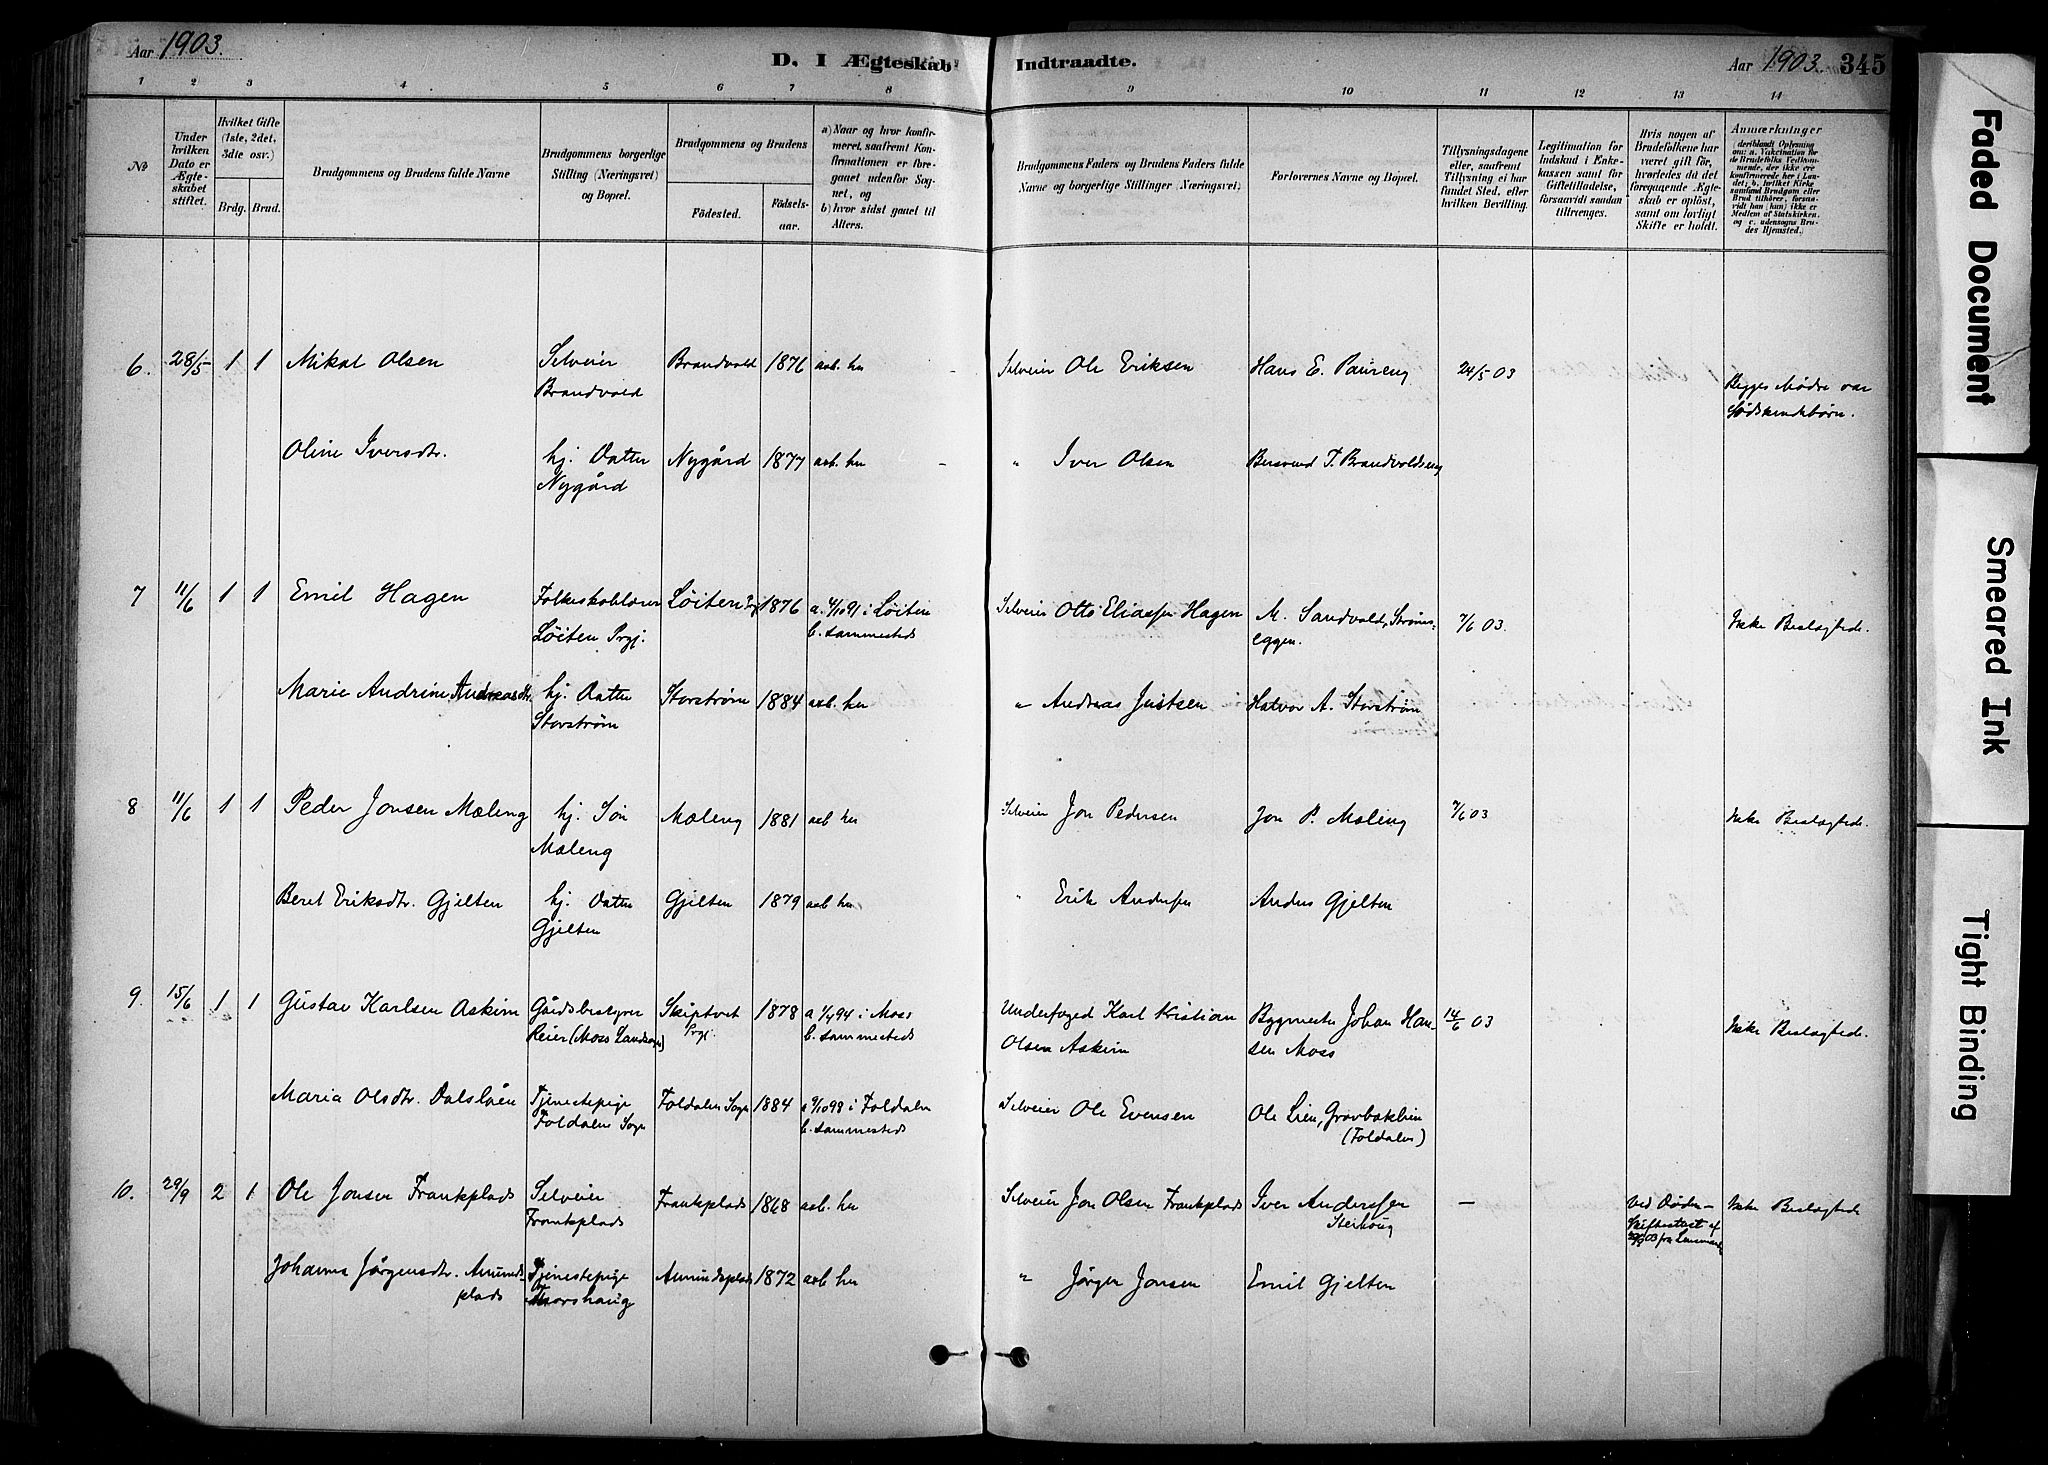 Aar 1903.
D. I Ægteskab Indtraadte.
Aar 1903. 345
1 2 3 4 5 6 7 8 9 10 11 12 13 14
No
Under hvilken Dato er Ægteskabet stiftet.
Hvilket Gifte (1ste, 2det, 3die osv.)
Brdg. Brud.
Brudgommens og Brudens fulde Navne
Brudgommens borgerlige Stilling (Næringsvei) og Bopæl.
Brudgommens og Brudens
Födested.
Födselsaar.
a) Naar og hvor konfirmeret, saafremt Konfirmationen er foregaaet udenfor Sognet, og
b) hvor sidst gaaet til Alters.
Brudgommens Faders og Brudens Faders fulde Navne og borgerlige Stillinger (Næringsvei).
Forlovernes Navne og Bopæl.
Tillysningsdagene eller, saafremt Tillysning ei har fundet Sted, efter hvilken Bevilling.
Legitimation for Indskud i Enkekassen samt for Giftetilladelse, forsaavidt saadan tiltrænges.
Hvis nogen af Brudefolkene har været gift før, hvorledes da det foregaaende Ægteskab er opløst, samt om lovligt Skifte er holdt.
Anmærkninger (deriblandt Oplysning om: a. Vakcination for de Brudefolks Vedkommende, der ikke ere konfirmerede her i Landet; b. hvilket Kirkesamfund Brudgom eller Brud tilhører, forsaavidt han (hun) ikke er Medlem af Statskirken, og c. udensogns Brudes Hjemsted.)
6. 28/5 1 1 Mikal Olsen Selveier Brandvold 1876 aab. her Selveier Ole Eriksen Hans E. Paureng 24/5 03
Brandvold Begges Mødre var
Södskendebörn.
Oline Iversdtr. hj. Datter Nygård 1877 aab. her " Iver Olsen Bersvend T. Brandvoldseng
Nygård
7 11/6 1 1 Emil Hagen Folkeskolelærer Løiten Prgj 1876 a. 4/10 91 i Løiten Selveier Otto Eliassen Hagen M. Sandvold, Strømseggen. 7/6 03. Ikke Beslægtede.
Løiten Prgj. b. sammesteds
Marie Andrine Andreasdtr. hj. Datter Storstrøm 1884 aab. her " Andreas Justsen Halvor A. Storstrøm
Storstrøm
8 11/6 1 1 Peder Jonsen Mæleng hj. Søn Mæleng 1881 aab her Selveier Jon Pedersen Jon P. Mæleng 7/6 03 Ikke Beslægtede.
Mæleng
Beret Eriksdtr. Gjelten hj. Datter Gjelten 1879 aab her " Erik Andersen Anders Gjelten
Gjelten
9. 15/6 1 1 Gustav Karlsen Askim Gårdsbestyrer Skiptvet 1878 a 1/4 94 i Moss Underfoged Karl Kristian Bygmester Johan Han- 14/6 03 Ikke Beslægtede.
Reier (Moss Landsogn) Prgj. b. sammesteds Olsen Askim sen Moss
Maria Olsdtr. Dalsløen Tjenestepige Foldalen Sogn 1884 a 9/10 98 i Foldalen Selveier Ole Evensen Ole Lien, Gravbaklien
Foldalen Sogn b. sammesteds (Foldalen)
10. 29/9 2 1 Ole Jonsen Frankplads Selveier Frankplads 1868 aab. her Selveier Jon Olsen Frankplads Iver Anderssen — Ved Døden – Ikke Beslægtede
Frankplads Steihaug Skifteattest af
29/9 03 fra Lensmand
Johanna Jörgensdtr. Amunds- Tjenestepige Amundsplads 1872 aab her " Jörgen Jonsen Emil Gjelten
plads
Faded Document
Smeared Ink
Tight Binding